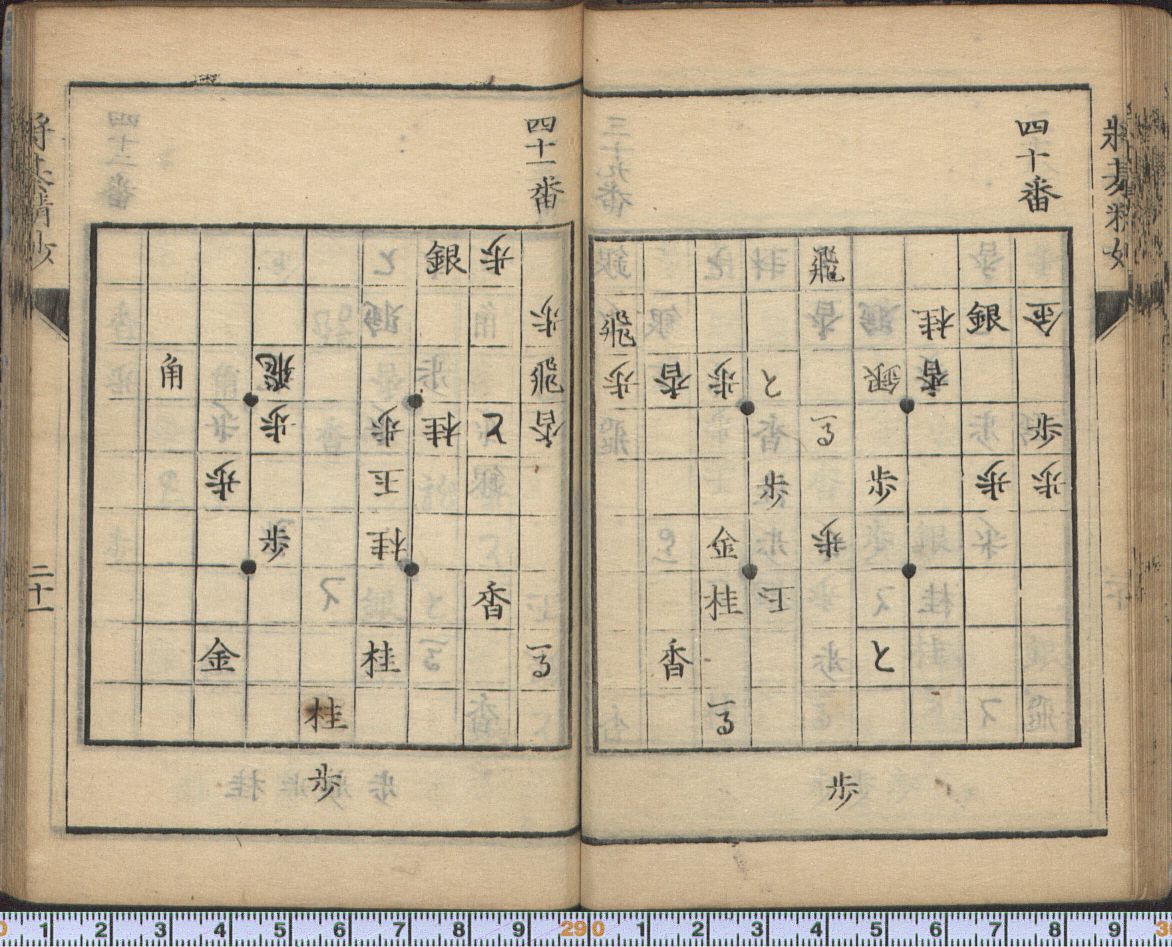 四十番
飛
飛 桂 銀 金
歩 香 歩 と 銀 香
馬 歩
歩 歩 歩 歩
金 歩
桂 玉
香 と
馬
歩
四十一番
銀 歩
歩
角 飛 飛
歩 歩 桂 と 香
歩 玉
歩 桂
香
金 桂
桂
歩
将棊精妙
二十一
0 1 2 3 4 5 6 7 8 9 29 0 1 2 3 4 5 6 7 8 9 3